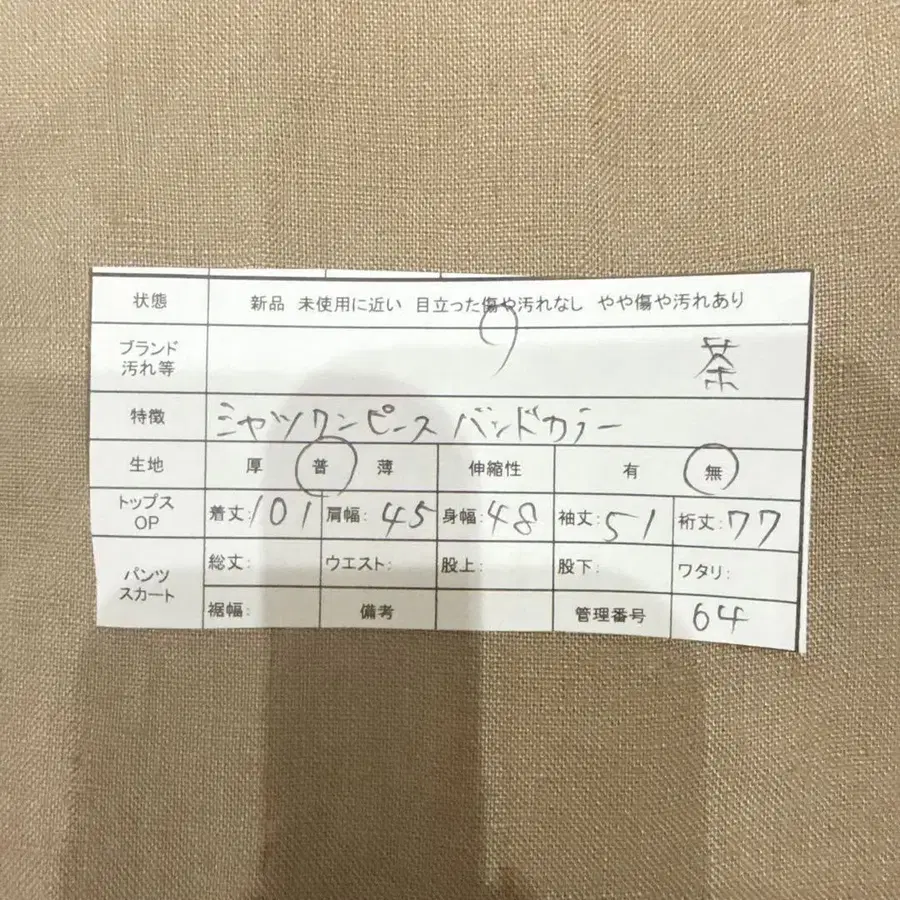 状態 新品 未使用に近い 目立った傷や汚れなし やや傷や汚れあり
ブランド
汚れ等 茶
特徴 シャツワンピース バンドカラー
生地 厚 普 薄 伸縮性 有 無
トップス
OP 着丈:101 肩幅:45 身幅:48 袖丈:51 裄丈:77
パンツ
スカート 総丈: ウエスト: 股上: 股下: ワタリ:
裾幅: 備考 管理番号 64